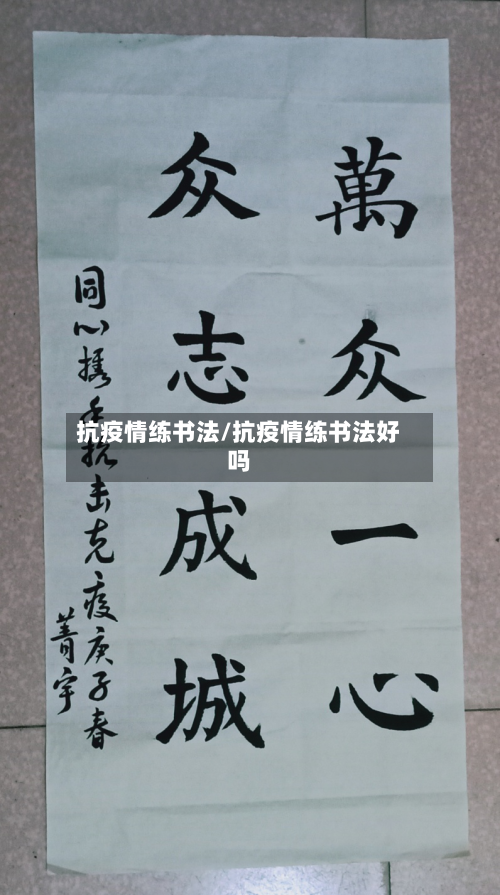 萬众一心
众志成城
同心携手抗击克疫庚子春
菁宇
抗疫情练书法/抗疫情练书法好
吗